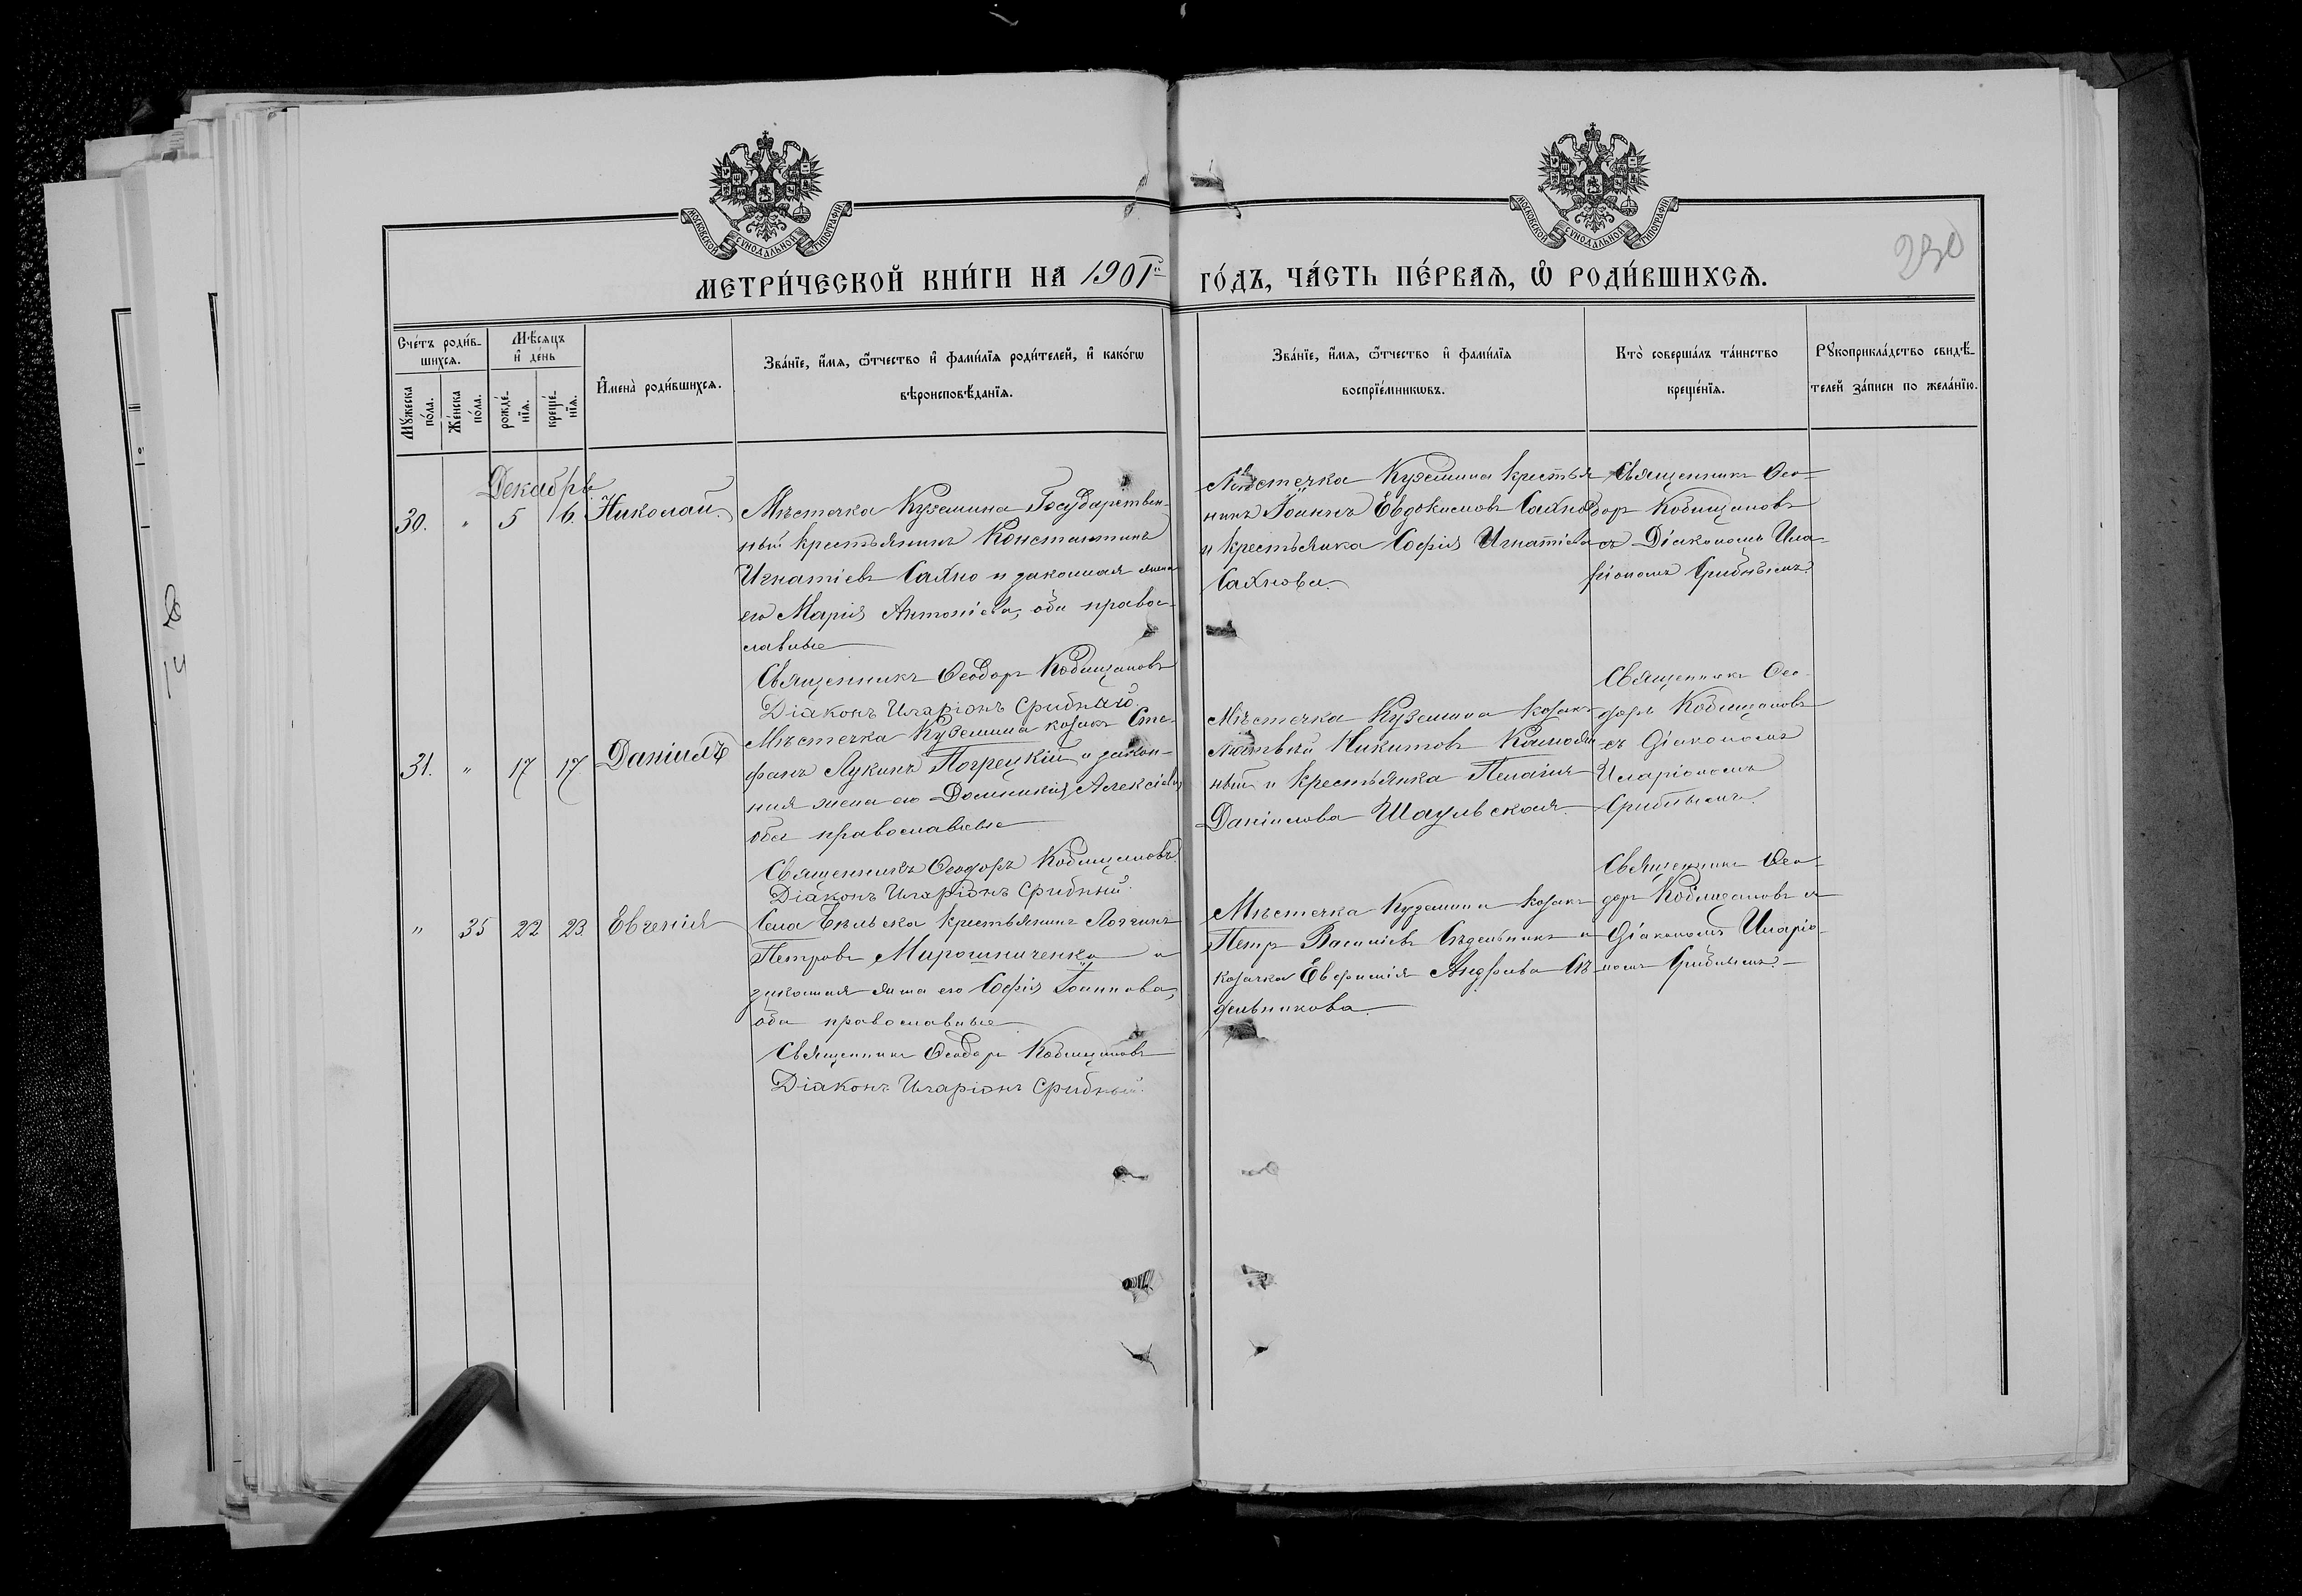 МОСКОВСКОЙ СѴНОДАЛЬНОЙ ТИПОГРАФІИ
МОСКОВСКОЙ СѴНОДАЛЬНОЙ ТИПОГРАФІИ
230
МЕТРИ́ЧЕСКОЙ КНИ́ГИ НА 1901й
ГО́ДЪ, ЧА́СТЬ ПЕ́РВАѦ, Ѡ҆ РОДИ́ВШИХСѦ.
Сче́тъ роди́в-
шихсѧ.
Мѣ́сѧцъ
и҆ де́нь
И҆мена̀ роди́вшихсѧ.
Зва́нїе, и҆́мѧ, ѻ҆́тчество и҆ фами́лїѧ роди́телей, и҆ како́гѡ
вѣроисповѣ́данїѧ.
Мꙋ́жеска
по́ла.
Же́нска
по́ла.
рожде́-
нїѧ.
креще́-
нїѧ.
Зва́нїе, и҆́мѧ, ѻ҆́тчество и҆ фами́лїѧ
воспрїе́мникѡвъ.
Кто̀ соверша́лъ та́инство
креще́нїѧ.
Рꙋкоприкла́дство свидѣ́-
телей за́писи по жела́нїю.
Декабрь
30. " 5 6. Николай.
Мѣстечка Куземина Государствен-
ный крестьянинъ Константинъ
Игнатіевъ Сахно и законная жена
его Марія Антоніева, оба правос-
лавные
Священникъ Ѳеодоръ Кобищановъ
Діаконъ Иларіонъ Срибный
Мѣстечка Куземина крестья-
нинъ Іоаннъ Евдокимовъ Сахно
и крестьянка Софія Игнатіева
Сахнова.
Священникъ Ѳео-
доръ Кобищановъ
съ Діакономъ Ила-
ріономъ Срибнымъ.
31. " 17 17 Даніилъ
Мѣстечка Куземина козакъ Сте-
фанъ Лукинъ Погрецкій и закон-
ная жена его Домникія Алексіева,
оба православные
Священникъ Ѳеодоръ Кобищановъ
Діаконъ Иларіонъ Срибный.
Мѣстечка Куземина козакъ
Никитовъ
ный и крестьянка Пелагія
Даніилова Шаульская.
Священникъ Ѳео-
доръ Кобищановъ
съ Діакономъ
Иларіономъ
Срибнымъ.
" 35 22 23. Евгенія
Села Бѣльска крестьянинъ Логгинъ
Петровъ Мирошниченко и
законная жена его Софія Іоаннова,
оба православные
Священникъ Ѳеодоръ Кобищановъ
Діаконъ Иларіонъ Срибный.
Мѣстечка Куземина козакъ
Петръ Василіевъ Сѣдельникъ и
козачка Евфимія Андреева Сѣ-
дельникова.
Священникъ Ѳео-
доръ Кобищановъ и
Діакономъ Иларіо-
номъ Срибнымъ.